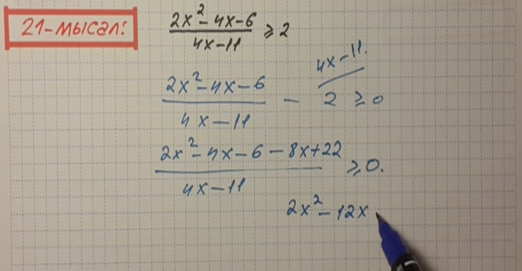 21-мысал:
2x²-4x-6 / 4x-11 ≥ 2
2x²-4x-6 / 4x-11 - 2 / 4x-11. ≥ 0
2x²-4x-6-8x+22 / 4x-11 ≥ 0.
2x²-12x